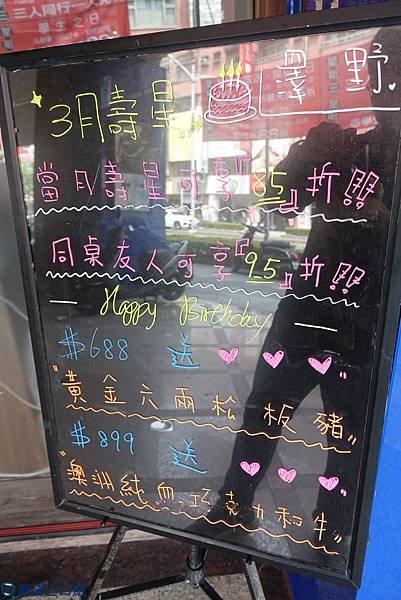 三人同行一人
學生之日
澤野
3月壽星
當月壽星可享『85』折!!
同桌友人可享『95』折!!
Happy Birthday
$688 送
"黃金六兩松板豬"
$899 送
"澳洲純血巧克力和牛"